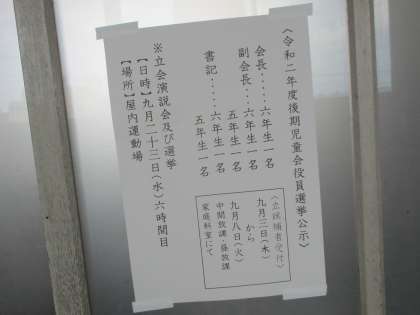 〈令和二年度後期児童会役員選挙公示〉
会長‥‥‥六年生一名
副会長‥‥六年生一名
五年生一名
書記‥‥‥六年生一名
五年生一名
〈立候補者受付〉
九月三日(木)
から
九月八日(火)
中間放課・昼放課
家庭科室にて
※立会演説会及び選挙
【日時】九月二十三日(水)六時間目
【場所】屋内運動場